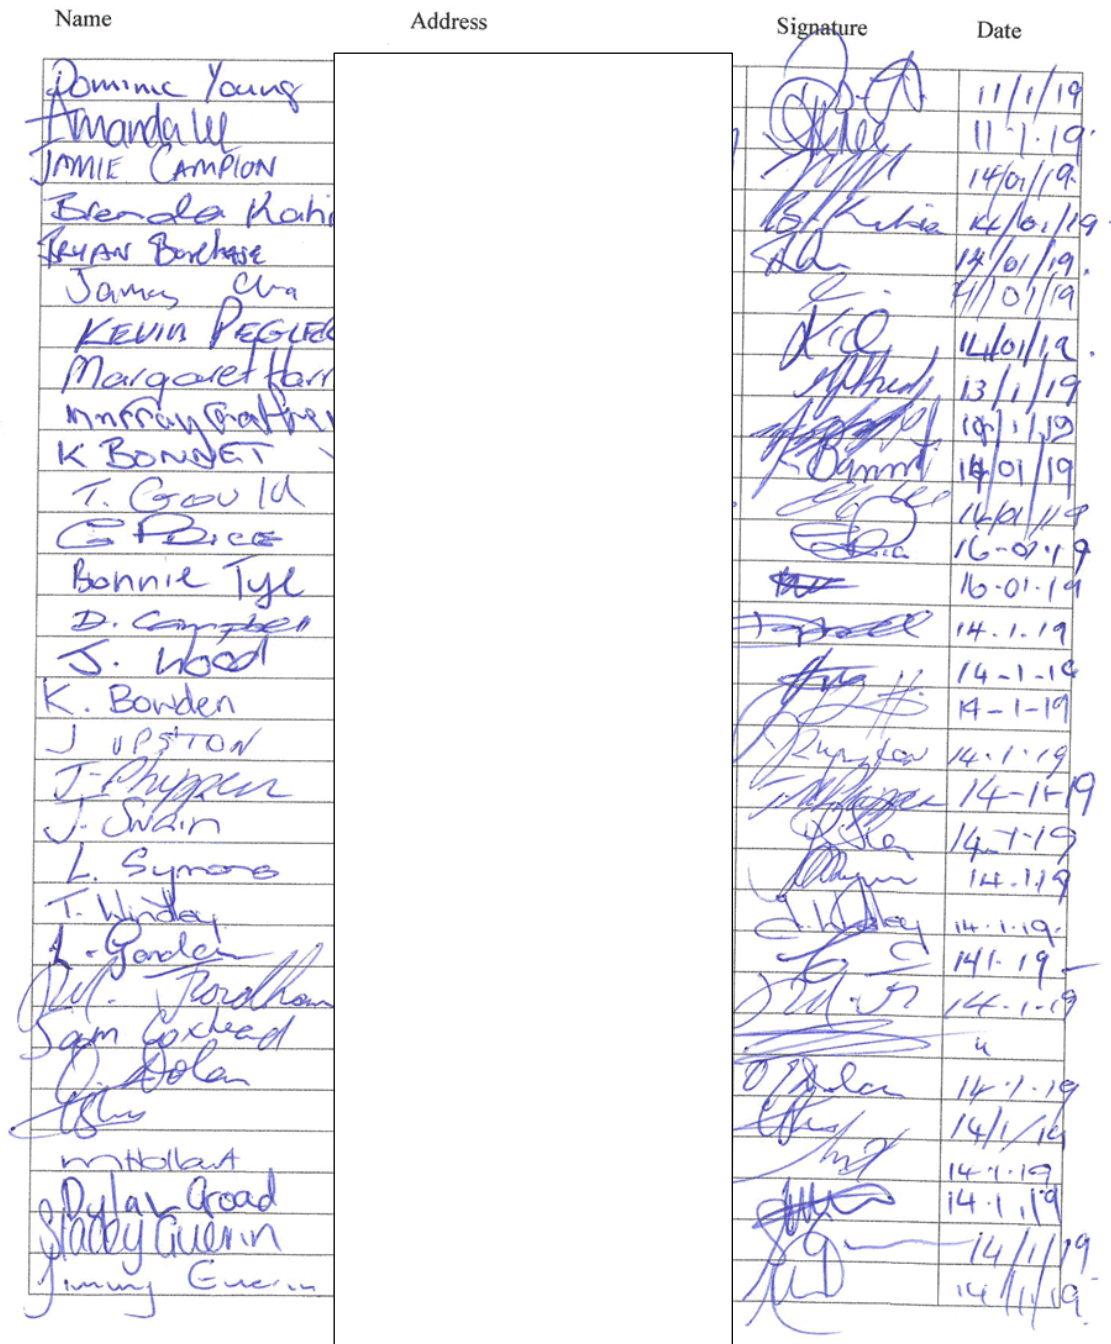 Name Address Signature Date
Dominic Young 11/1/19
Amanda 11.1.19.
JAMIE CAMPION 14/01/19.
Brenda Kahi 14/01/19.
BRYAN 14/01/19.
James 14/01/19
KEVIN PEGLER 14/01/19.
Margaret Harr 13/1/19
Murray 1/19
K BONNET K. Bonnet 14/01/19
T. Gould 14/01/19
G PRICE 16-01-19
Bonnie Tyl 16-01-19
D. Campbell 14.1.19
J. Wood 14-1-19
K. Bowden 14-1-19
J UPSTON JRUpston 14.1.19
J. Phippen 14-1-19
J. Swain 14-1-19
L. Symons 14.1.19
T. Windley T. Windley 14.1.19.
L. Garden 14/1.19
M. Fordham 14-1-19
Sam Coxhead "
O. Dolan O Dolan 14.1.19
14/1/19
M Hollant 14.1.19
Dylan Groad 14.1.19
Stacey Guerin 14/1/19
Jimmy Guerin 14/1/19